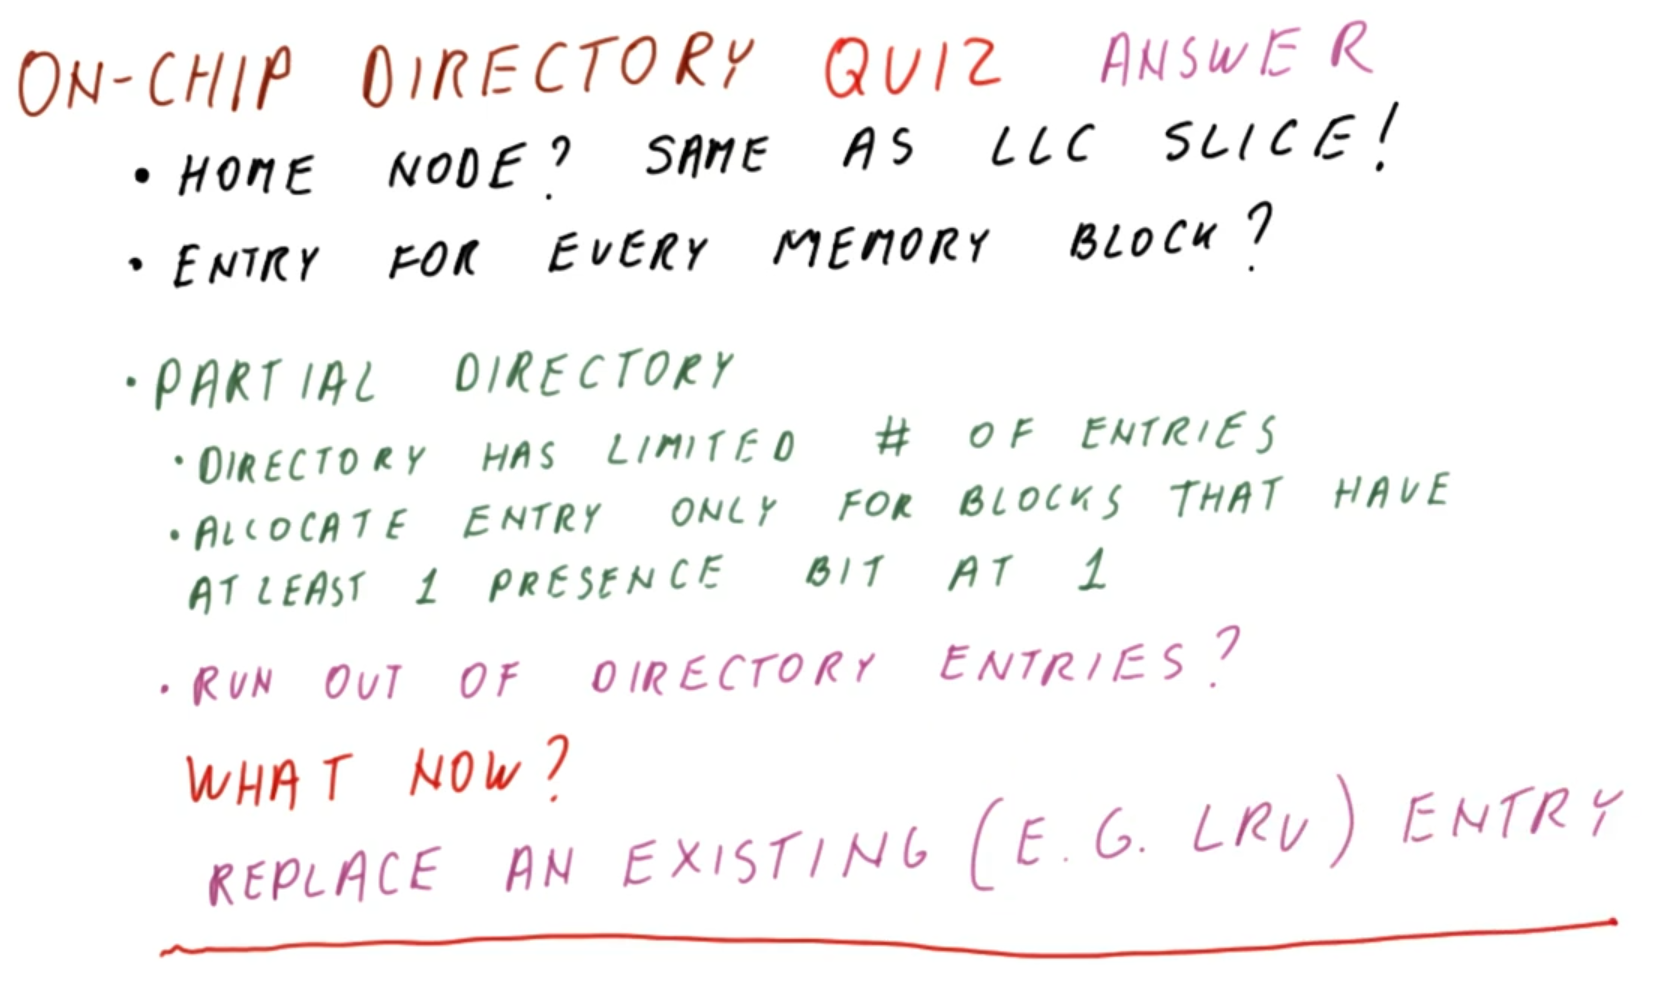 ON-CHIP DIRECTORY QUIZ ANSWER
• HOME NODE? SAME AS LLC SLICE!
• ENTRY FOR EVERY MEMORY BLOCK?
• PARTIAL DIRECTORY
• DIRECTORY HAS LIMITED # OF ENTRIES
• ALLOCATE ENTRY ONLY FOR BLOCKS THAT HAVE
AT LEAST 1 PRESENCE BIT AT 1
• RUN OUT OF DIRECTORY ENTRIES?
WHAT NOW?
REPLACE AN EXISTING (E.G. LRU) ENTRY